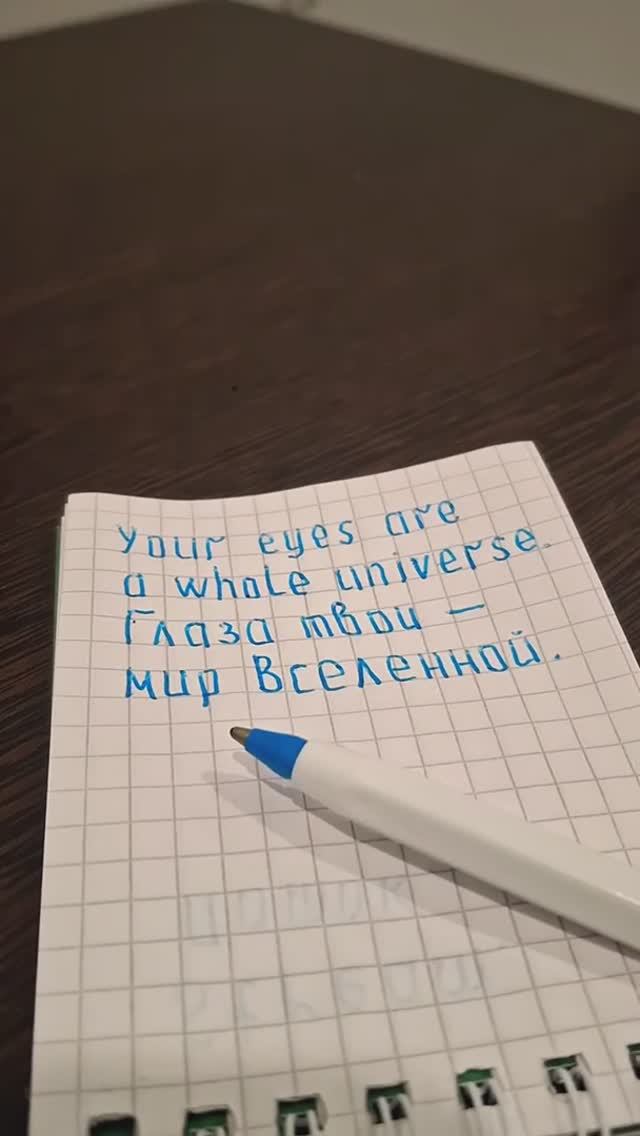 Your eyes are
a whole universe.
Глаза твои —
мир Вселенной.